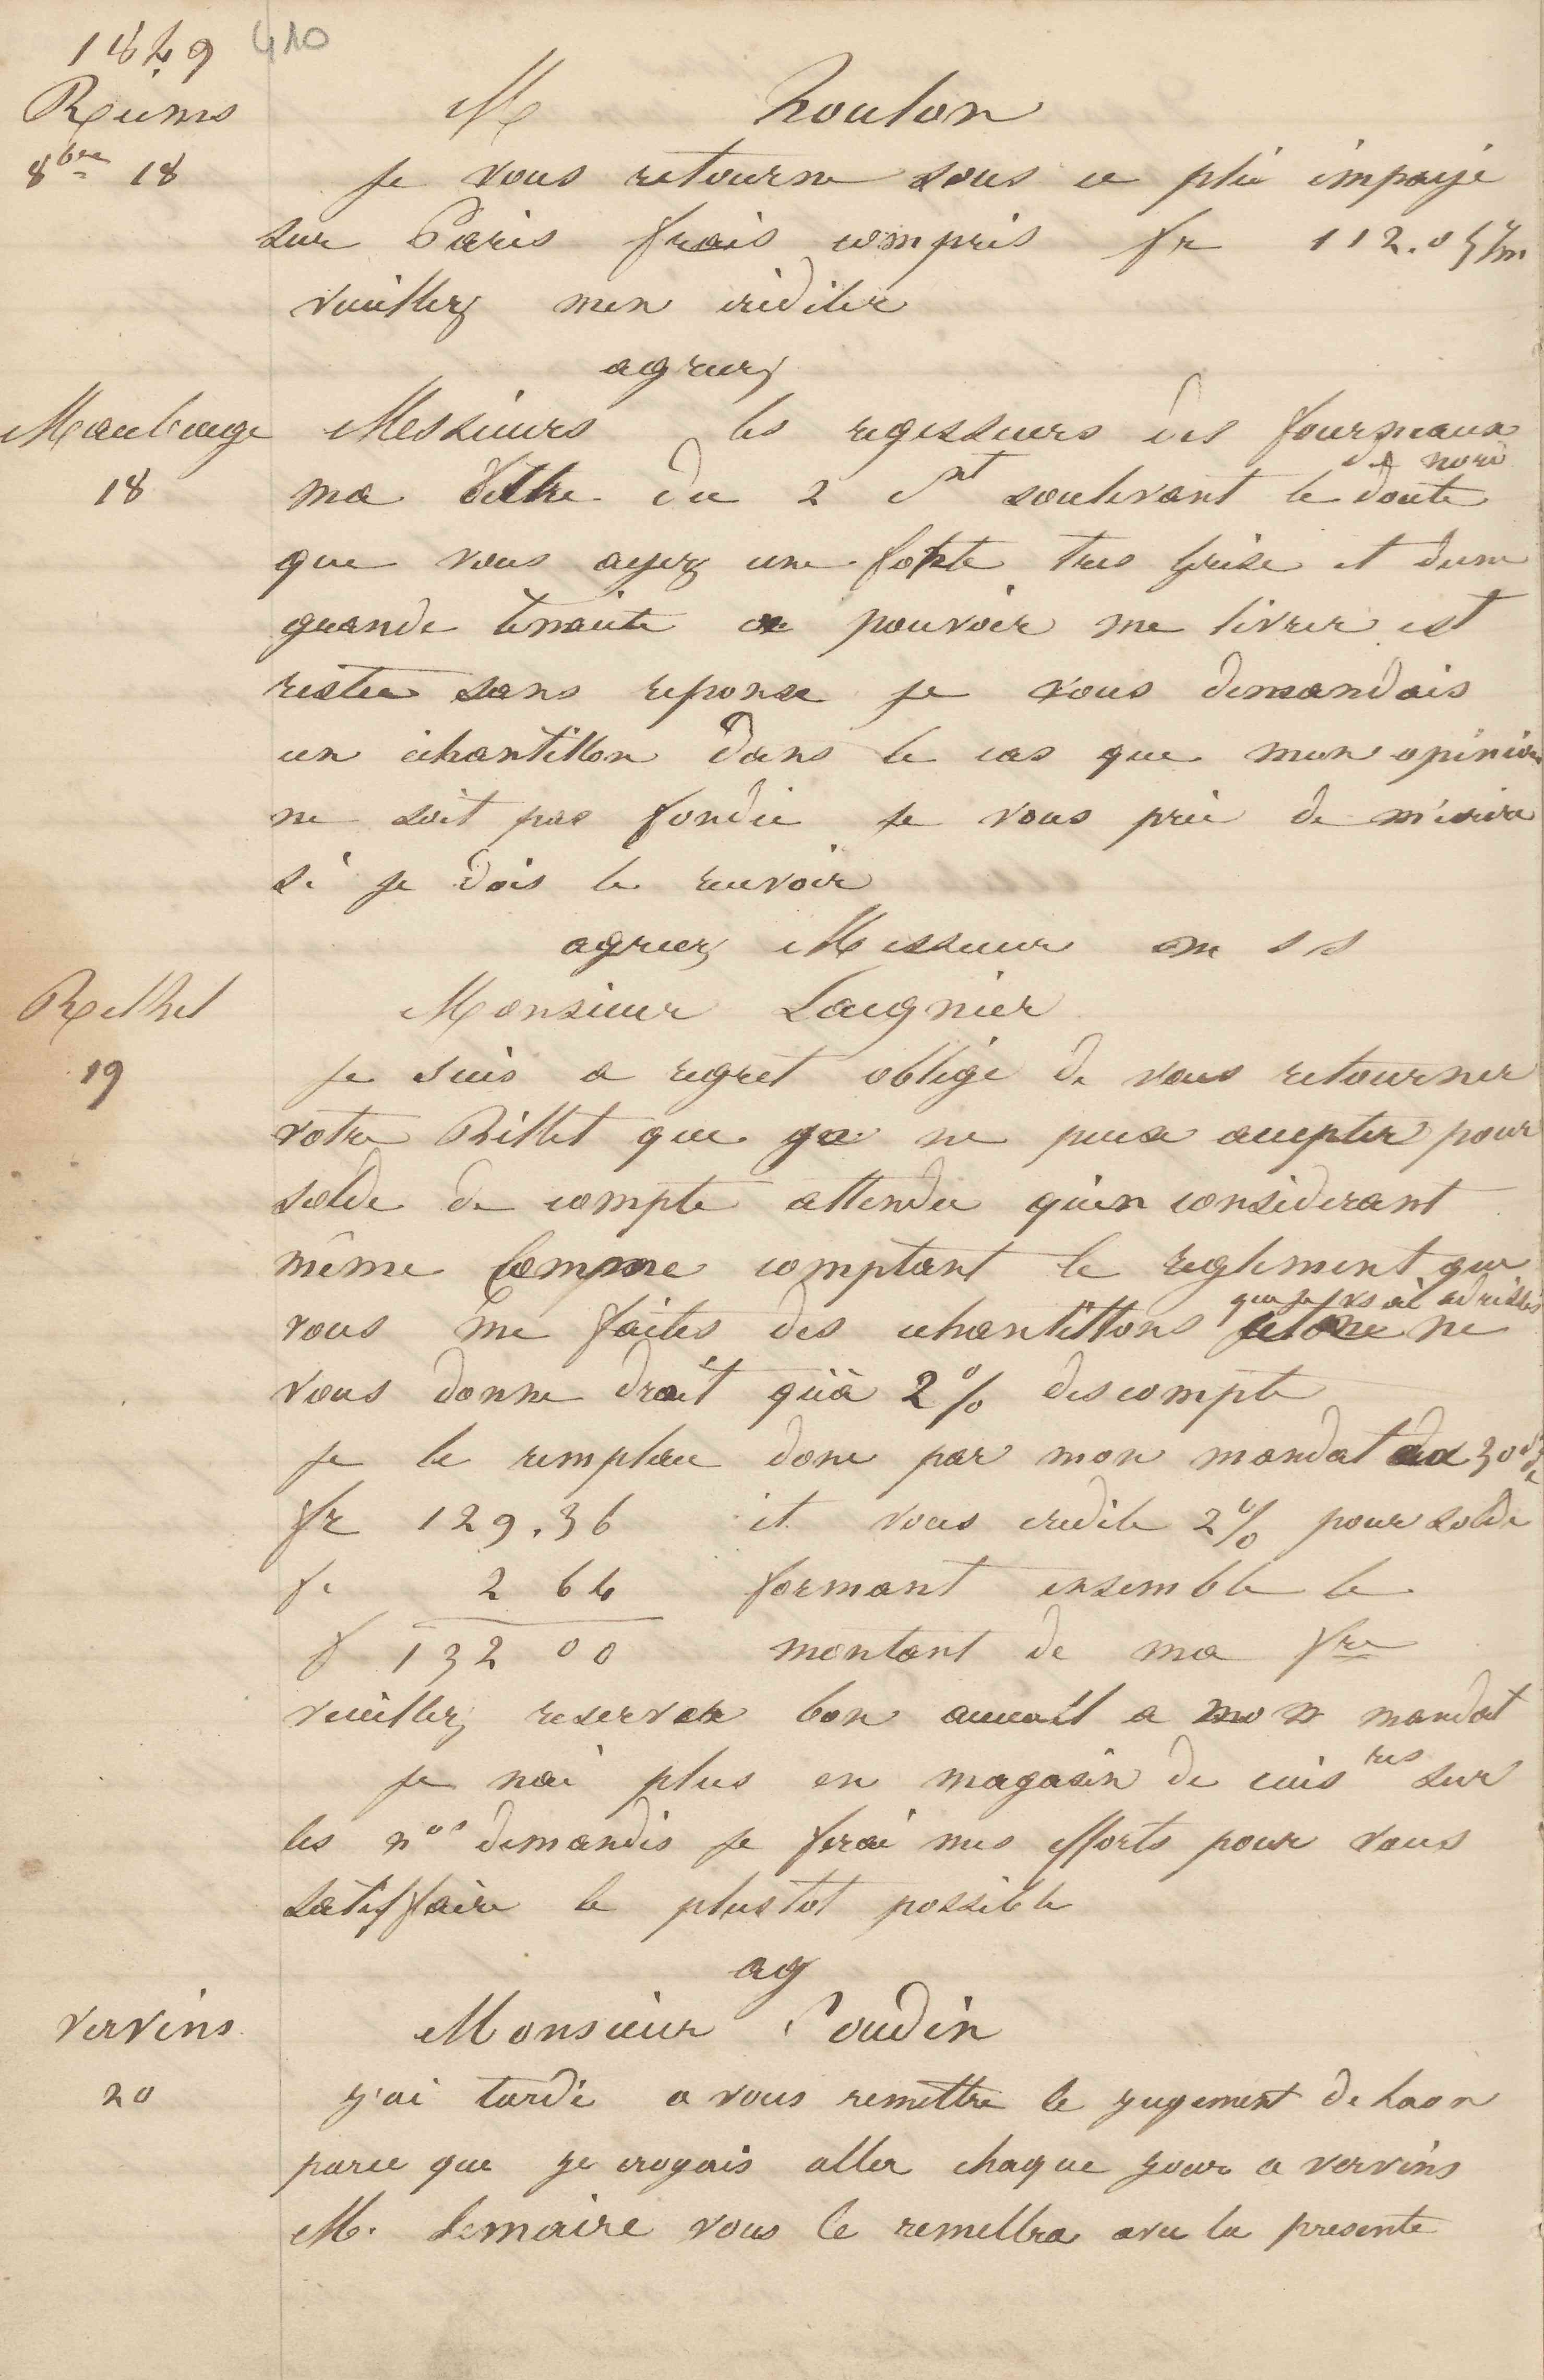 1849 410
Reims
8bre 18
M houlon
je vous retourne sous ce plie impayé
sur Paris frais compris fr 112.05
veuillez men crediter
agreez
Maubeuge
18
Messieurs les regisseurs des fourneaux
du nord
ma lettre du 2 ct soulevant le doute
que vous ayez une fonte tres grise et dune
grande tenacité a pouvoir me livrer est
restee sans reponse je vous demandais
un echantillon dans le cas que mon opinion
ne soit pas fondée je vous prie de m'ecrire
si je dois le recevoir
agreez Messieur m s s
Rethel
19
Monsieur Laignier
je suis a regret obligé de vous retourner
votre Billet que je ne peux accepter pour
solde de compte attendu qu'en considerant
même comme comptant le reglement que
que je vs ai adressés
vous me faites des echantillons ne
vous donne droit qu'à 2% descompte
je le remplace donc par mon mandat au 30 de
fr 129.36 et vous credite 2% pour solde
fr 2 64 formant ensemble le
f 132 00 montant de ma fre
veuillez reserver bon accueil a mon mandat
je nai plus en magasin de cuisres sur
les nos demandés je ferai mes efforts pour vous
satisffaire le plustot possible
ag
Vervins
20
Monsieur Soudin
j'ai tardé a vous remettre le jugement de Laon
parce que je croyais aller chaque jour a vervins
M. Lemaire vous le remettra avec la presente